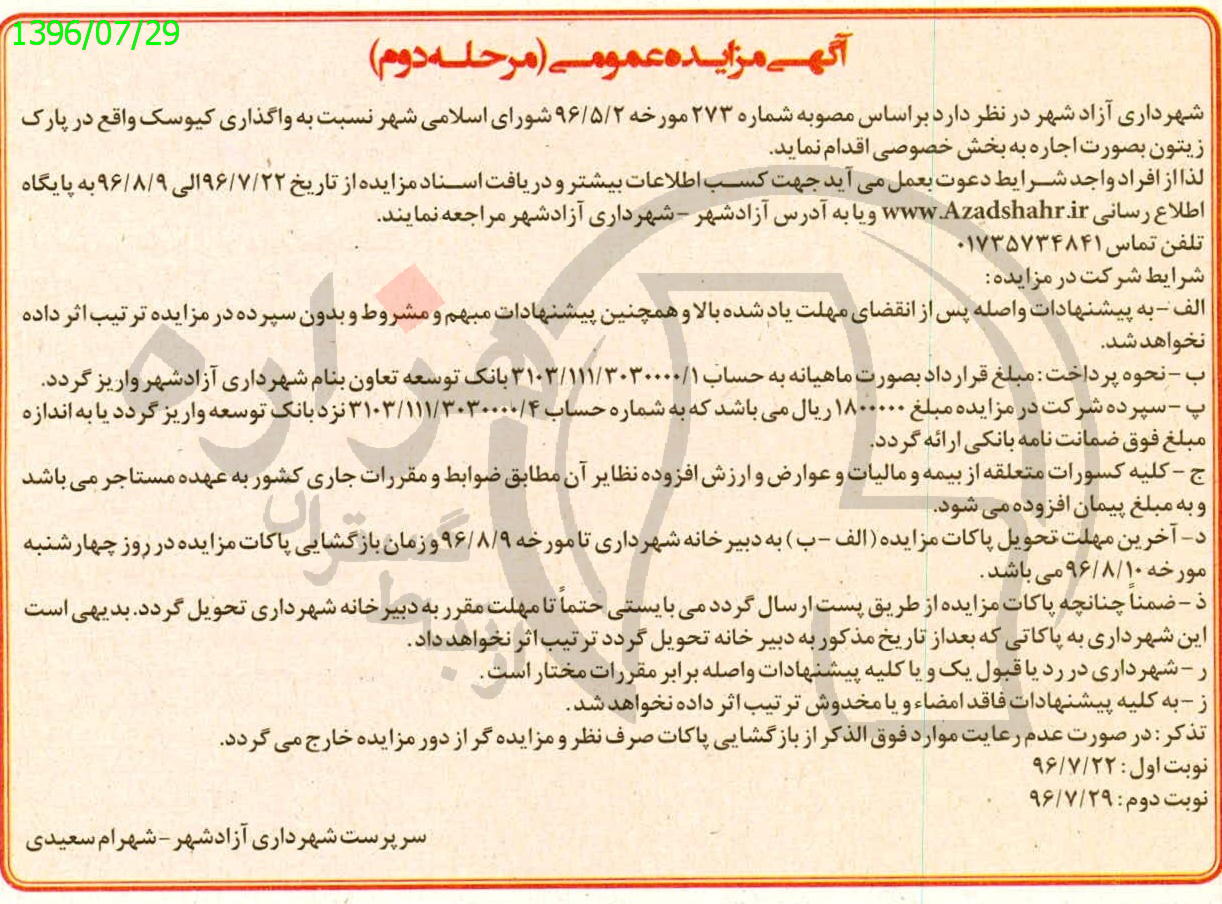 1396/07/29
آگهی مزایده عمومی (مرحله دوم)
شهرداری آزاد شهر در نظر دارد براساس مصوبه شماره ۲۷۳ مورخه ۹۶/۵/۲ شورای اسلامی شهر نسبت به واگذاری کیوسک واقع در پارک
زیتون بصورت اجاره به بخش خصوصی اقدام نماید.
لذا از افراد واجد شرایط دعوت بعمل می آید جهت کسب اطلاعات بیشتر و دریافت اسناد مزایده از تاریخ ۹۶/۷/۲۲ الی ۹۶/۸/۹ به پایگاه
اطلاع رسانی www.Azadshahr.ir ویا به آدرس آزادشهر – شهرداری آزادشهر مراجعه نمایند.
تلفن تماس ۰۱۷۳۵۷۳۴۸۴۱
شرایط شرکت در مزایده:
الف – به پیشنهادات واصله پس از انقضای مهلت یاد شده بالا و همچنین پیشنهادات مبهم و مشروط و بدون سپرده در مزایده ترتیب اثر داده
نخواهد شد.
ب – نحوه پرداخت: مبلغ قرارداد بصورت ماهیانه به حساب ۳۱۰۳/۱۱۱/۳۰۳۰۰۰۰/۱ بانک توسعه تعاون بنام شهرداری آزادشهر واریز گردد.
پ – سپرده شرکت در مزایده مبلغ ۱۸۰۰۰۰۰ ریال می باشد که به شماره حساب ۳۱۰۳/۱۱۱/۳۰۳۰۰۰۰/۴ نزد بانک توسعه واریز گردد یا به اندازه
مبلغ فوق ضمانت نامه بانکی ارائه گردد.
ج – کلیه کسورات متعلقه از بیمه و مالیات و عوارض و ارزش افزوده نظایر آن مطابق ضوابط و مقررات جاری کشور به عهده مستاجر می باشد
و به مبلغ پیمان افزوده می شود.
د – آخرین مهلت تحویل پاکات مزایده (الف – ب) به دبیرخانه شهرداری تا مورخه ۹۶/۸/۹ و زمان بازگشایی پاکات مزایده در روز چهارشنبه
مورخه ۹۶/۸/۱۰ می باشد.
ذ – ضمناً چنانچه پاکات مزایده از طریق پست ارسال گردد می بایستی حتماً تا مهلت مقرر به دبیرخانه شهرداری تحویل گردد. بدیهی است
این شهرداری به پاکاتی که بعداز تاریخ مذکور به دبیر خانه تحویل گردد ترتیب اثر نخواهد داد.
ر – شهرداری در رد یا قبول یک و یا کلیه پیشنهادات واصله برابر مقررات مختار است.
ز – به کلیه پیشنهادات فاقد امضاء و یا مخدوش ترتیب اثر داده نخواهد شد.
تذکر: در صورت عدم رعایت موارد فوق الذکر از بازگشایی پاکات صرف نظر و مزایده گر از دور مزایده خارج می گردد.
نوبت اول: ۹۶/۷/۲۲
نوبت دوم: ۹۶/۷/۲۹
سرپرست شهرداری آزادشهر – شهرام سعیدی